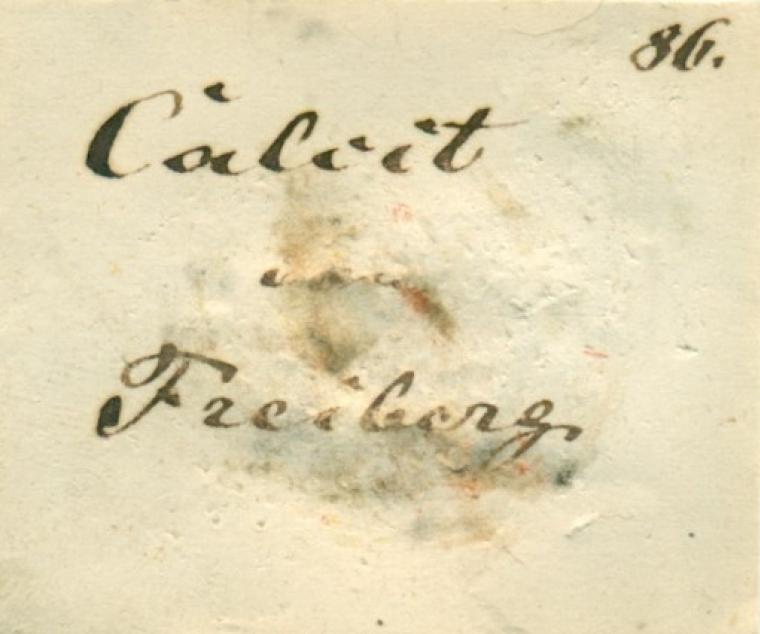 86.
Calcit
Freiberg.